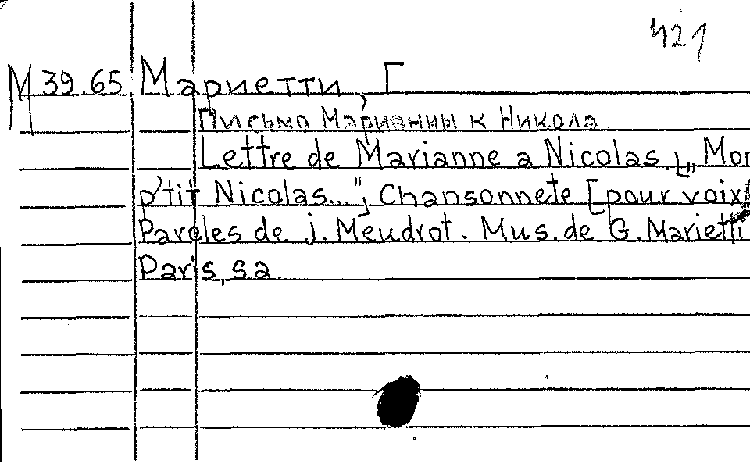 421
М 39.65 Мариетти, Г
Письмо Марианны к Никола
Lettre de Marianne a Nicolas. [„Mon
p'tit Nicolas..."] Chansonnete [pour voix]
Paroles de j. Meudrot. Mus. de G. Marietti
Paris, s.a